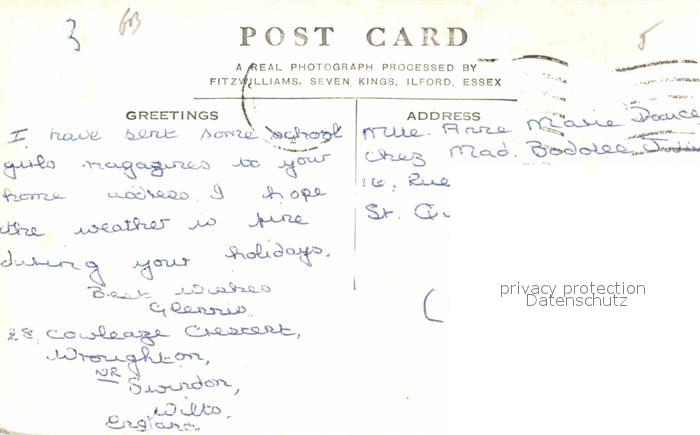 3 GB 5
POST CARD
A REAL PHOTOGRAPH PROCESSED BY
FITZWILLIAMS, SEVEN KINGS, ILFORD, ESSEX
GREETINGS
I have sent some school
girls magazines to your
home address. I hope
the weather is fine
during your holidays.
Best Wishes
Glennis.
28, Cowleaze Crescent,
Wroughton,
NR
Swindon,
Wilts.
England
ADDRESS
Mlle. Anne Marie
Chez Mad.
16, Rue
St.
privacy protection
Datenschutz